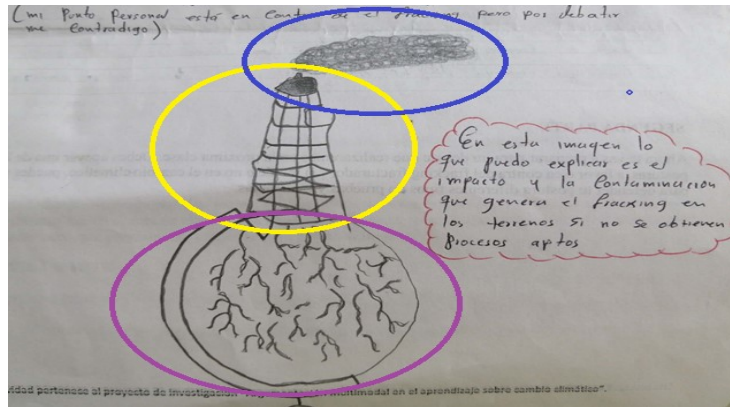 (mi Punto Personal está en Contra de el fracking pero por debatir
me Contradigo)
En esta imagen lo
que puedo explicar es el
impacto y la Contaminacion
que genera el fracking en
los terrenos si no se obtienen
Procesos aptos
vidad pertenece al proyecto de investigación multimodal en el aprendizaje sobre cambio climático".